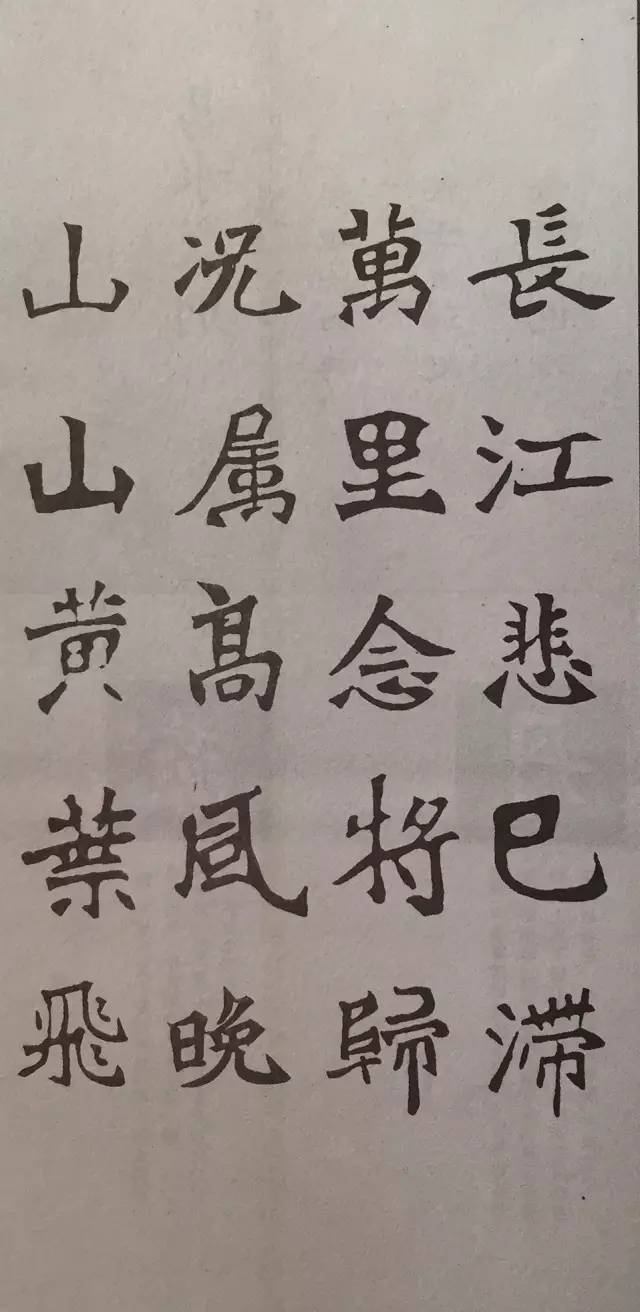 長江悲已滯
萬里念将歸
况属高風晚
山山黄葉飛